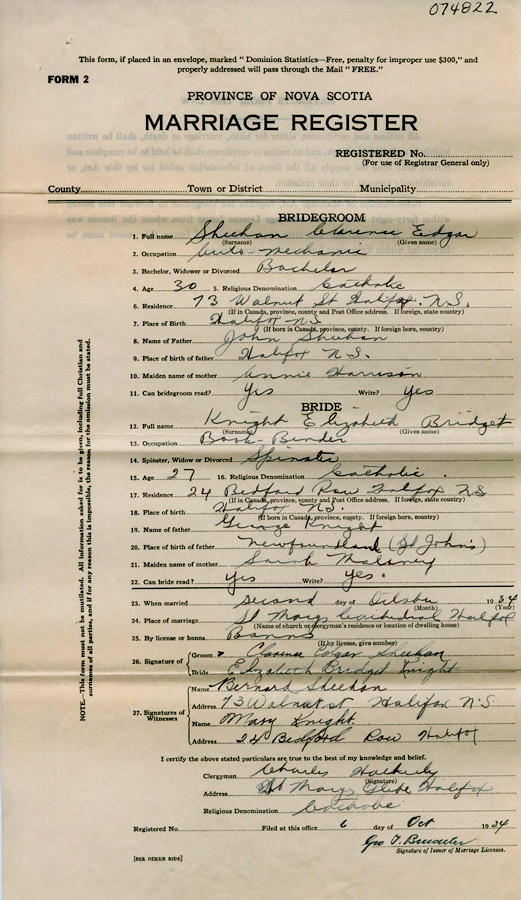 074822
This form, if placed in an envelope, marked "Dominion Statistics—Free, penalty for improper use $300," and
properly addressed will pass through the Mail "FREE."
FORM 2
PROVINCE OF NOVA SCOTIA
MARRIAGE REGISTER
REGISTERED No.
(For use of Registrar General only)
County Town or District Municipality
BRIDEGROOM
1. Full name Sheehan Clarence Edgar
(Surname) (Given name)
2. Occupation Auto-mechanic
3. Bachelor, Widower or Divorced Bachelor
4. Age 30 5. Religious Denomination Catholic
6. Residence 73 Walnut St Halifax. N.S.
(If in Canada, province, county and Post Office address. If foreign, state country)
7. Place of Birth Halifax N.S.
(If born in Canada, province, county. If foreign born, country)
8. Name of Father John Sheehan
9. Place of birth of father Halifax N.S.
10. Maiden name of mother Annie Harrison
11. Can bridegroom read? Yes Write? Yes
BRIDE
12. Full name Knight Elizabeth Bridget
(Surname) (Given name)
13. Occupation Book-Binder
14. Spinster, Widow or Divorced Spinster
15. Age 27 16. Religious Denomination Catholic
17. Residence 24 Bedford Row Halifax NS
(If in Canada, province, county and Post Office address. If foreign, state country)
18. Place of birth Halifax NS.
(If born in Canada, province, county. If foreign born, country)
19. Name of father George Knight
20. Place of birth of father Newfoundland (St John's)
21. Maiden name of mother Sarah Maloney
22. Can bride read? Yes Write? Yes.
23. When married second day of October 1934
(Month) (Year)
24. Place of marriage St Marys Cathedral Halifax
(Name of church or clergyman's residence or location of dwelling house)
25. By license or banns Banns
(If by license, give number)
26. Signature of Groom Clarence Edgar Sheehan
Bride Elizabeth Bridget Knight
27. Signatures of Witnesses
Name Bernard Sheehan
Address 73 Walnut st Halifax N.S.
Name Mary Knight.
Address 24 Bedford Row Halifax
I certify the above stated particulars are true to the best of my knowledge and belief.
Clergyman Charles
(Signature)
Address St Marys Glebe Halifax
Religious Denomination Catholic
Registered No. Filed at this office 6 day of Oct 1934
Geo T.
Signature of Issuer of Marriage Licenses.
[SEE OTHER SIDE]
NOTE.—This form must not be mutilated. All information asked for is to be given, including full Christian and
surnames of all parties, and if for any reason this is impossible, the reason for the omission must be stated.